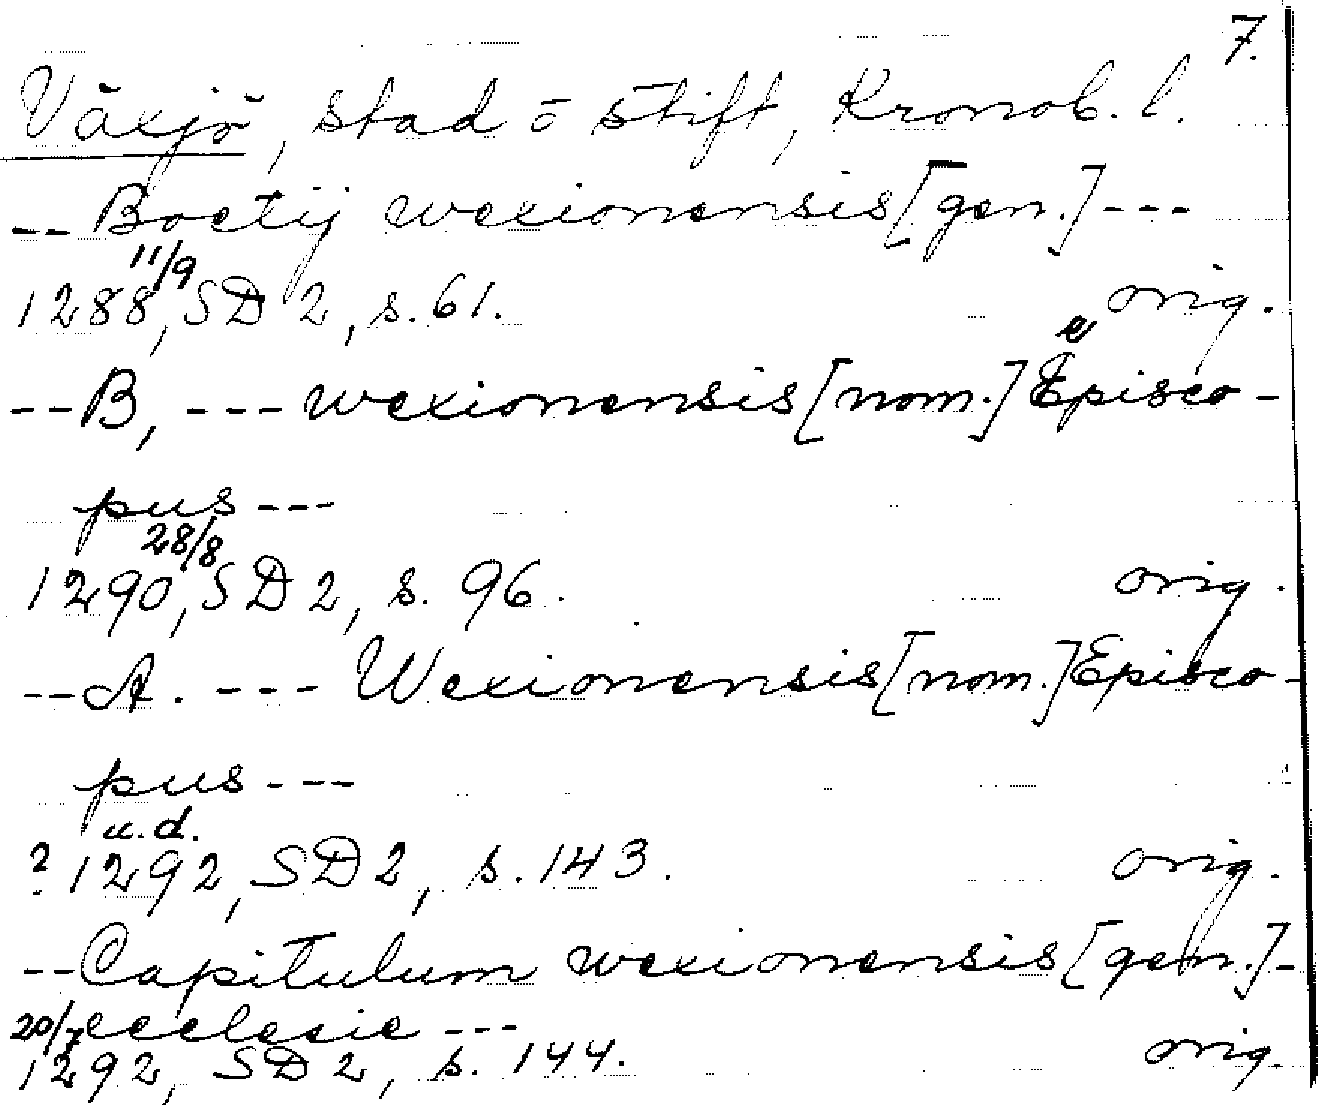 7.
Växjö, stad o stift, Kronob. l.
-- Boetij wexionensis [gen.] ---
11/9
1288, SD 2, s. 61. orig.
e
-- B, --- wexionensis [nom.] Episco-
pus ---
28/8
1290, SD 2, s. 96. orig.
-- A. --- Wexionensis [nom.] Episco-
pus ---
u.d.
? 1292, SD 2, s. 143. orig.
-- Capitulum wexionensis [gen.] -
20/7 ecclesie ---
1292, SD 2, s. 144. orig.